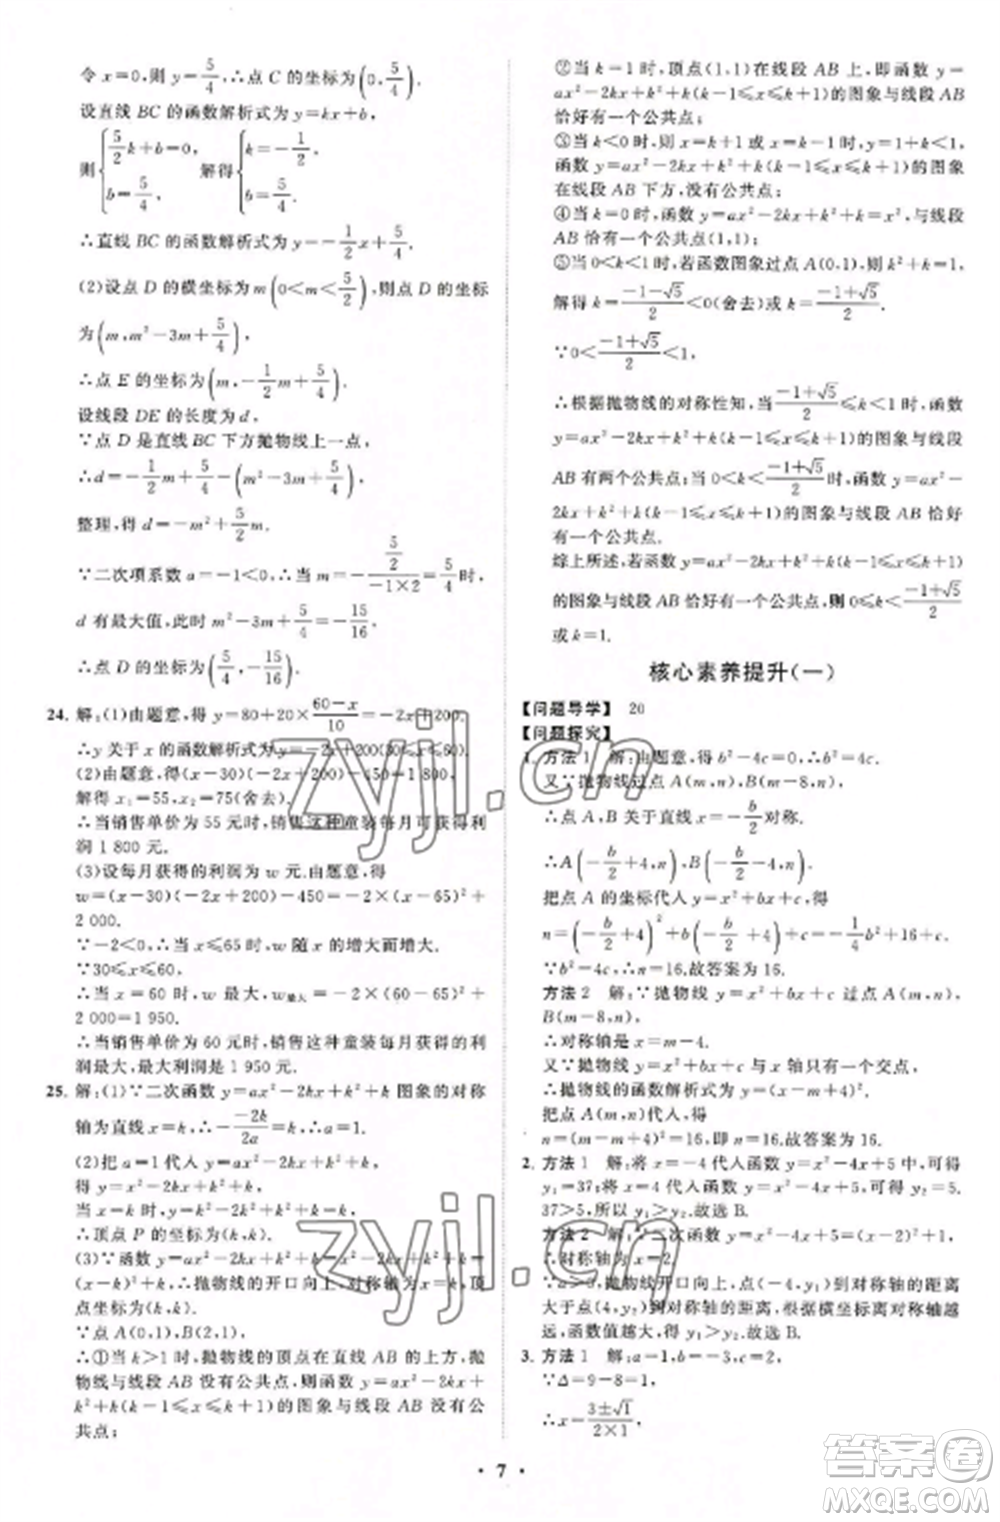 令 x=0,则 y=5/4,∴点 C 的坐标为(0,5/4).
设直线 BC 的函数解析式为 y=kx+b,
则{5/2k+b=0, b=5/4, 解得{k=-1/2, b=5/4.
∴直线 BC 的函数解析式为 y=-1/2x+5/4.
(2)设点 D 的横坐标为 m(0<m<5/2),则点 D 的坐标
为(m,m²-3m+5/4),
∴点 E 的坐标为(m,-1/2m+5/4).
设线段 DE 的长度为 d,
∵点 D 是直线 BC 下方抛物线上一点,
∴d=-1/2m+5/4-(m²-3m+5/4),
整理,得 d=-m²+5/2m.
∵二次项系数 a=-1<0,∴当 m=-(5/2)/(-1×2)=5/4时,
d 有最大值,此时 m²-3m+5/4=-15/16,
∴点 D 的坐标为(5/4,-15/16).
24. 解:(1)由题意,得 y=80+20×(60-x)/10=-2x+200.
∴y 关于 x 的函数解析式为 y=-2x+200(30≤x≤60).
(2)由题意,得(x-30)(-2x+200)-450=1 800,
解得 x₁=55,x₂=75(舍去).
∴当销售单价为 55 元时,销售这种童装每月可获得利
润 1 800 元.
(3)设每月获得的利润为 w 元.由题意,得
w=(x-30)(-2x+200)-450=-2(x-65)²+
2 000.
∵-2<0,∴当 x≤65 时,w 随 x 的增大而增大.
∵30≤x≤60,
∴当 x=60 时,w 最大,w最大=-2×(60-65)²+
2 000=1 950.
∴当销售单价为 60 元时,销售这种童装每月获得的利
润最大,最大利润是 1 950 元.
25. 解:(1)∵二次函数 y=ax²-2kx+k²+k 图象的对称
轴为直线 x=k,∴-(-2k)/2a=k,∴a=1.
(2)把 a=1 代入 y=ax²-2kx+k²+k,
得 y=x²-2kx+k²+k,
当 x=k 时,y=k²-2k²+k²+k=k,
∴顶点 P 的坐标为(k,k).
(3)∵函数 y=ax²-2kx+k²+k=x²-2kx+k²+k=
(x-k)²+k,∴抛物线的开口向上,对称轴为 x=k,顶
点坐标为(k,k).
∵点 A(0,1),B(2,1),
∴①当 k>1 时,抛物线的顶点在直线 AB 的上方,抛
物线与线段 AB 没有公共点,即函数的图象与线段 AB 没有公
共点;
②当 k=1 时,顶点(1,1)在线段 AB 上,即函数 y=
ax²-2kx+k²+k(k-1≤x≤k+1)的图象与线段 AB
恰好有一个公共点;
③当 k<0 时,只有当 x=k+1 或 x=k-1 时,y=1+k<1,
函数 y=ax²-2kx+k²+k(k-1≤x≤k+1)的图象
在线段 AB 下方,没有公共点;
④当 k=0 时,函数 y=ax²-2kx+k²+k=x²,与线段
AB 恰好有一个公共点(1,1);
⑤当 0<k<1 时,若函数图象过点 A(0,1),则 k²+k=1,
解得 k=(-1-√5)/2<0(舍去)或 k=(-1+√5)/2.
∵0<(-1+√5)/2<1,
∴根据抛物线的对称性知,当(-1+√5)/2≤k<1时,函数
y=ax²-2kx+k²+k(k-1≤x≤k+1)的图象与线段
AB 有两个公共点;当 0<k<(-1+√5)/2时,函数 y=ax²-
2kx+k²+k(k-1≤x≤k+1)的图象与线段 AB 恰好
有一个公共点.
综上所述,若函数 y=ax²-2kx+k²+k(k-1≤x≤k+
1)的图象与线段 AB 恰好有一个公共点,则 0≤k<(-1+√5)/2
或 k=1.
核心素养提升(一)
【问题导学】 20
【问题探究】
1. 方法 1 解:由题意,得 b²-4c=0,∴b²=4c.
又∵抛物线过点 A(m,n),B(m-8,n),
∴点 A,B 关于直线 x=-b/2对称.
∴A(-b/2+4,n),B(-b/2-4,n).
把点 A 的坐标代入 y=x²+bx+c,得
n=(-b/2+4)²+b(-b/2+4)+c=-1/4b²+16+c,
∵b²-4c=0,∴n=16.故答案为 16.
方法 2 解:∵抛物线 y=x²+bx+c 过点 A(m,n),
B(m-8,n),
∴对称轴是 x=m-4.
又∵抛物线 y=x²+bx+c 与 x 轴只有一个公共点,
∴抛物线的函数解析式为 y=(x-m+4)².
把点 A(m,n)代入,得
n=(m-m+4)²=16,即 n=16.故答案为 16.
2. 方法 1 解:将 x=-4 代入函数 y=x²-4x+5 中,可得
y₁=37;将 x=1 代入函数 y=x²-4x+5 中,可得 y₂=5.
37>5,所以 y₁>y₂.故选 B.
方法 2 解:∵二次函数 y=x²-4x+5=(x-2)²+1,
∴对称轴为 x=2.
∵a>0,∴抛物线开口向上,点(-4,y₁)到对称轴的距离
大于点(1,y₂)到对称轴的距离,根据横坐标离对称轴越
远,函数值越大,得 y₁>y₂.故选 B.
3. 方法 1 解:a=1,b=-3,c=2,
∵Δ=9-8=1,
∴x=(3±√1)/(2×1),
• 7 •
zyjl.cn
zyjl.cn
答案圈
MXQE.COM